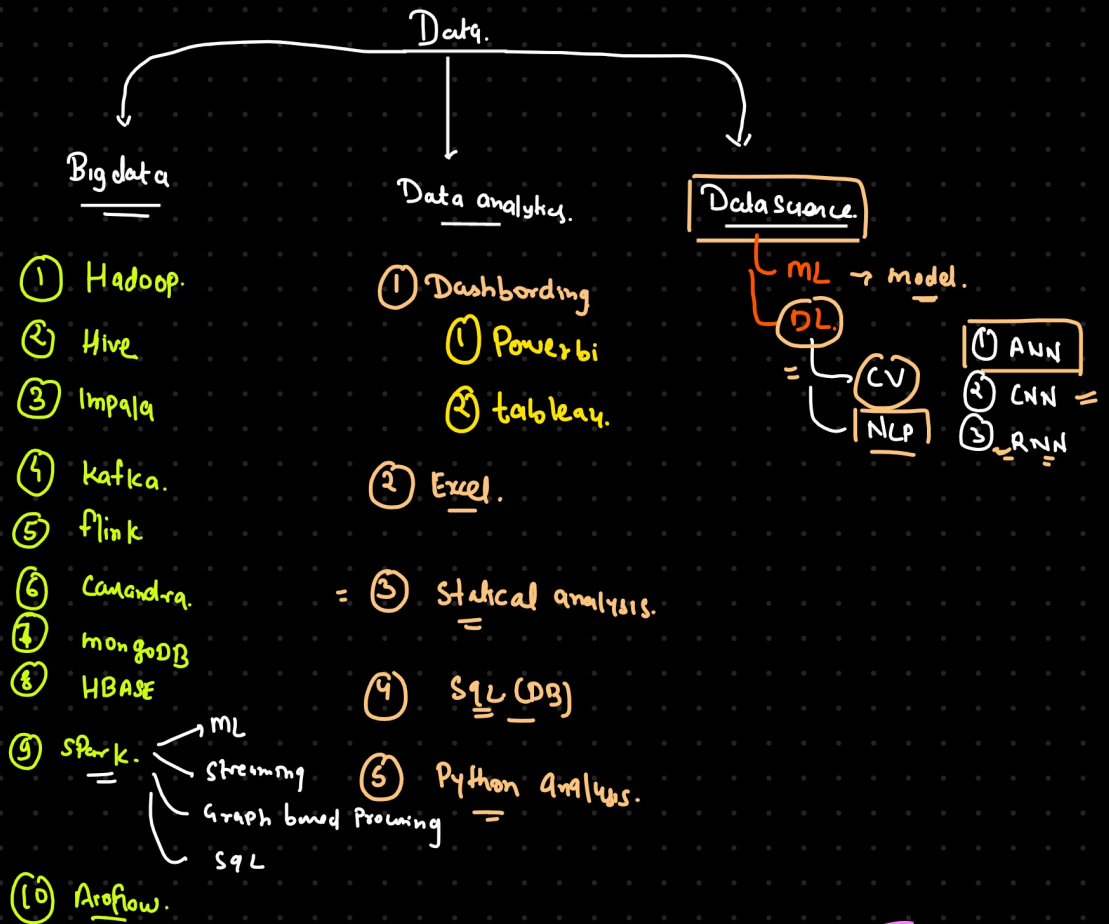 Data.
Big data
① Hadoop.
② Hive
③ Impala
④ Kafka.
⑤ flink
⑥ Cassandra.
⑦ mongoDB
⑧ HBASE
⑨ Spark.
ML
Streaming
Graph based Processing
SQL
⑩ Airflow.
Data analytics.
① Dashbording
① Powerbi
② tableau.
② Excel.
= ③ Statical analysis.
④ SQL (DB)
⑤ Python analysis.
Data Science.
ML → model.
DL.
= CV
NLP
① ANN
② CNN =
③ RNN